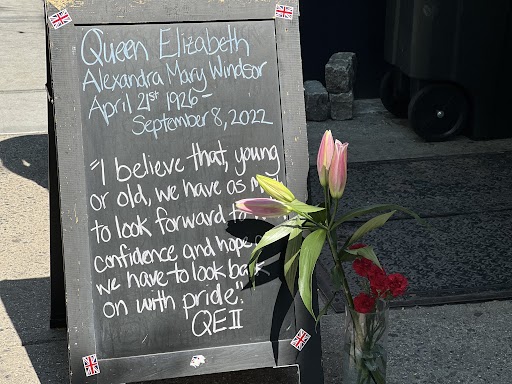 Queen Elizabeth
Alexandra Mary Windsor
April 21st 1926 -
September 8, 2022
"I believe that, young
or old, we have as
to look forward
confidence and hope
we have to look back
on with pride."
QE II